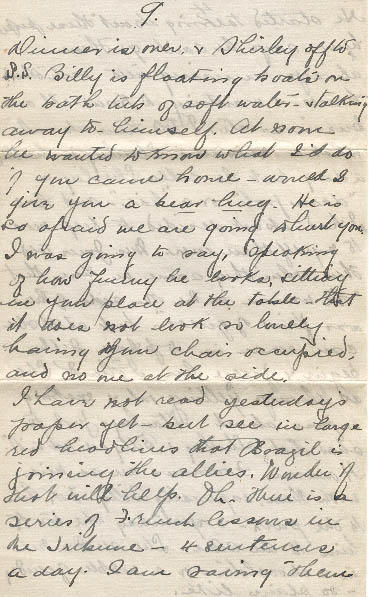 9.
Dinner is over & Shirley off to
S.S. Billy is floating boats on
the bath tub of soft water - talking
away to himself. At noon
he wanted to know what I'd do
if you came home - would I
give you a bear hug. He is
so afraid we are going to hurt you.
I was going to say, speaking
of how funny he looks, sitting
in your place at the table - that
it does not look so lonely
having your chair occupied,
and no one at the side.
I have not read yesterday's
paper yet - but see in large
red headlines that Brazil is
joining the allies. Wonder if
that will help. Oh. There is a
series of French lessons in
the Tribune - 4 sentences
a day. I am saving them